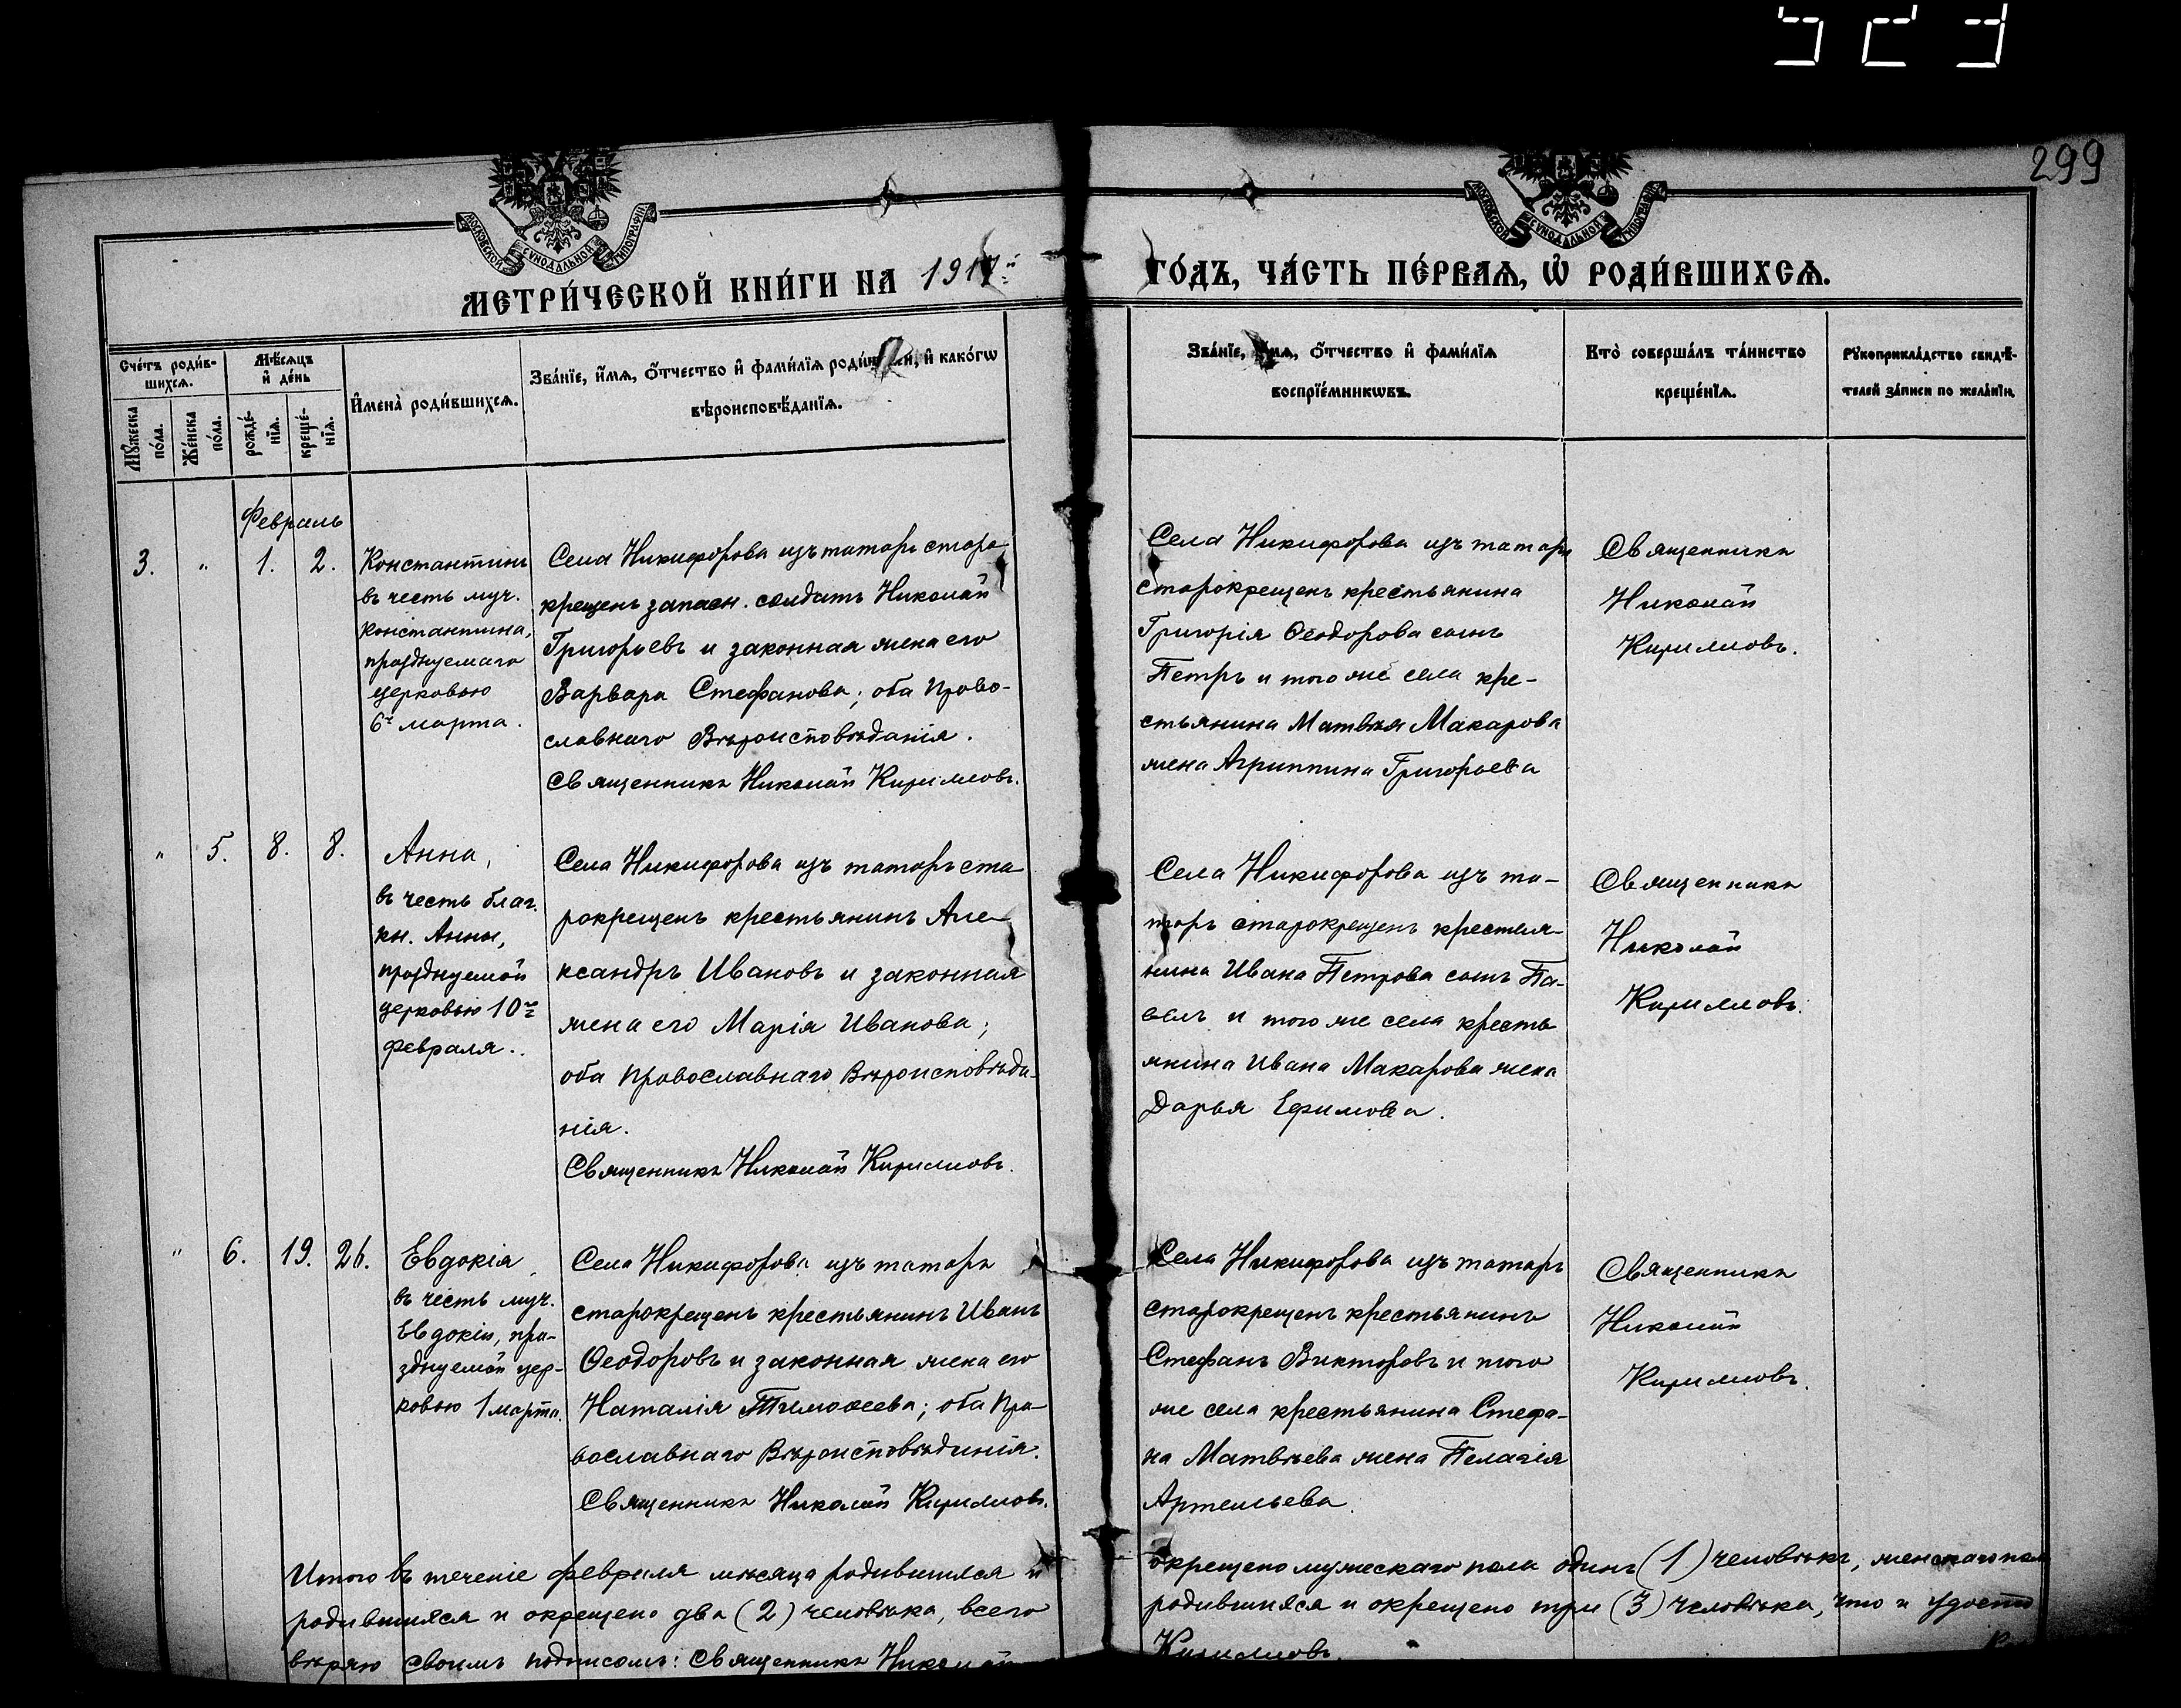 299
МОСКОВСКОЙ СѴНОДАЛЬНОЙ ТИПОГРАФІИ
МОСКОВСКОЙ СѴНОДАЛЬНОЙ ТИПОГРАФІИ
МЕТРИ́ЧЕСКОЙ КНИ́ГИ НА 1917й
ГО́ДЪ, ЧА́СТЬ ПЕ́РВАѦ, Ѡ РОДИ́ВШИХСѦ.
Сче́тъ роди́в-
шихсѧ.
Мꙋжеска по́ла.
Же́нска по́ла.
Мѣ́сѧцъ
и҆ де́нь
рожде́-
нїѧ.
креще́-
нїѧ.
И҆мена̀ роди́вшихсѧ.
Зва́нїе, и҆́мѧ, ѻ҆́тчество и҆ фами́лїѧ роди́телей, и҆ како́гѡ
вѣроисповѣ́данїѧ.
Зва́нїе, и҆́мѧ, ѻ҆́тчество и҆ фами́лїѧ
воспрїе́мникѡвъ.
Кто̀ соверша́лъ та́инство
креще́нїѧ.
Рꙋкоприкла́дство свидѣ́-
телей за́писи по жела́нїю.
Февраль
3. " 1. 2.
Константинъ
въ честь муч.
Константина,
празднуемаго
церковью
6го марта.
Села Никифорова изъ татаръ старо-
крещенъ запасн. солдатъ Николай
Григорьевъ и законная жена его
Варвара Стефанова; оба Право-
славнаго Вѣроисповѣданія.
Священникъ Николай Кирилловъ.
Села Никифорова изъ татаръ
старокрещенъ крестьянина
Григорія Ѳеодорова сынъ
Петръ и того же села кре-
стьянина Матвѣя Макарова
жена Агриппина Григорьева
Священникъ
Николай
Кирилловъ.
" 5. 8. 8.
Анна,
въ честь благ.
кн. Анны,
празднуемой
церковью 10го
февраля..
Села Никифорова изъ татаръ ста-
рокрещенъ крестьянинъ Але-
ксандръ Ивановъ и законная
жена его Марія Иванова;
оба Православнаго Вѣроисповѣда-
нія.
Священникъ Николай Кирилловъ.
Села Никифорова изъ та-
таръ старокрещенъ крестья-
нина Ивана Петрова сынъ Па-
велъ и того же села кресть-
янина Ивана Макарова жена
Дарья Ефимова.
Священникъ
Николай
Кирилловъ.
" 6. 19. 26.
Евдокія,
въ честь муч.
Евдокіи, пра-
зднуемой цер-
ковью 1 марта.
Села Никифорова изъ татаръ
старокрещенъ крестьянинъ Иванъ
Ѳеодоровъ и законная жена его
Наталія Тимоѳеева; оба Пра-
вославнаго Вѣроисповѣданія.
Священникъ Николай Кирилловъ.
Села Никифорова изъ татаръ
старокрещенъ крестьянинъ
Стефанъ Викторовъ и того
же села крестьянина Стефа-
на Матвѣева жена Пелагія
Артемьева.
Священникъ
Николай
Кирилловъ.
Итого въ теченіе февраля мѣсяца родившихся и
окрещено мужескаго пола одинъ (1) человѣкъ, женскаго пола
родившихся и окрещено два (2) человѣка, всего
родившихся и окрещено три (3) человѣка, что и удосто-
вѣряю своимъ подписомъ: Священникъ Николай
Кирилловъ.